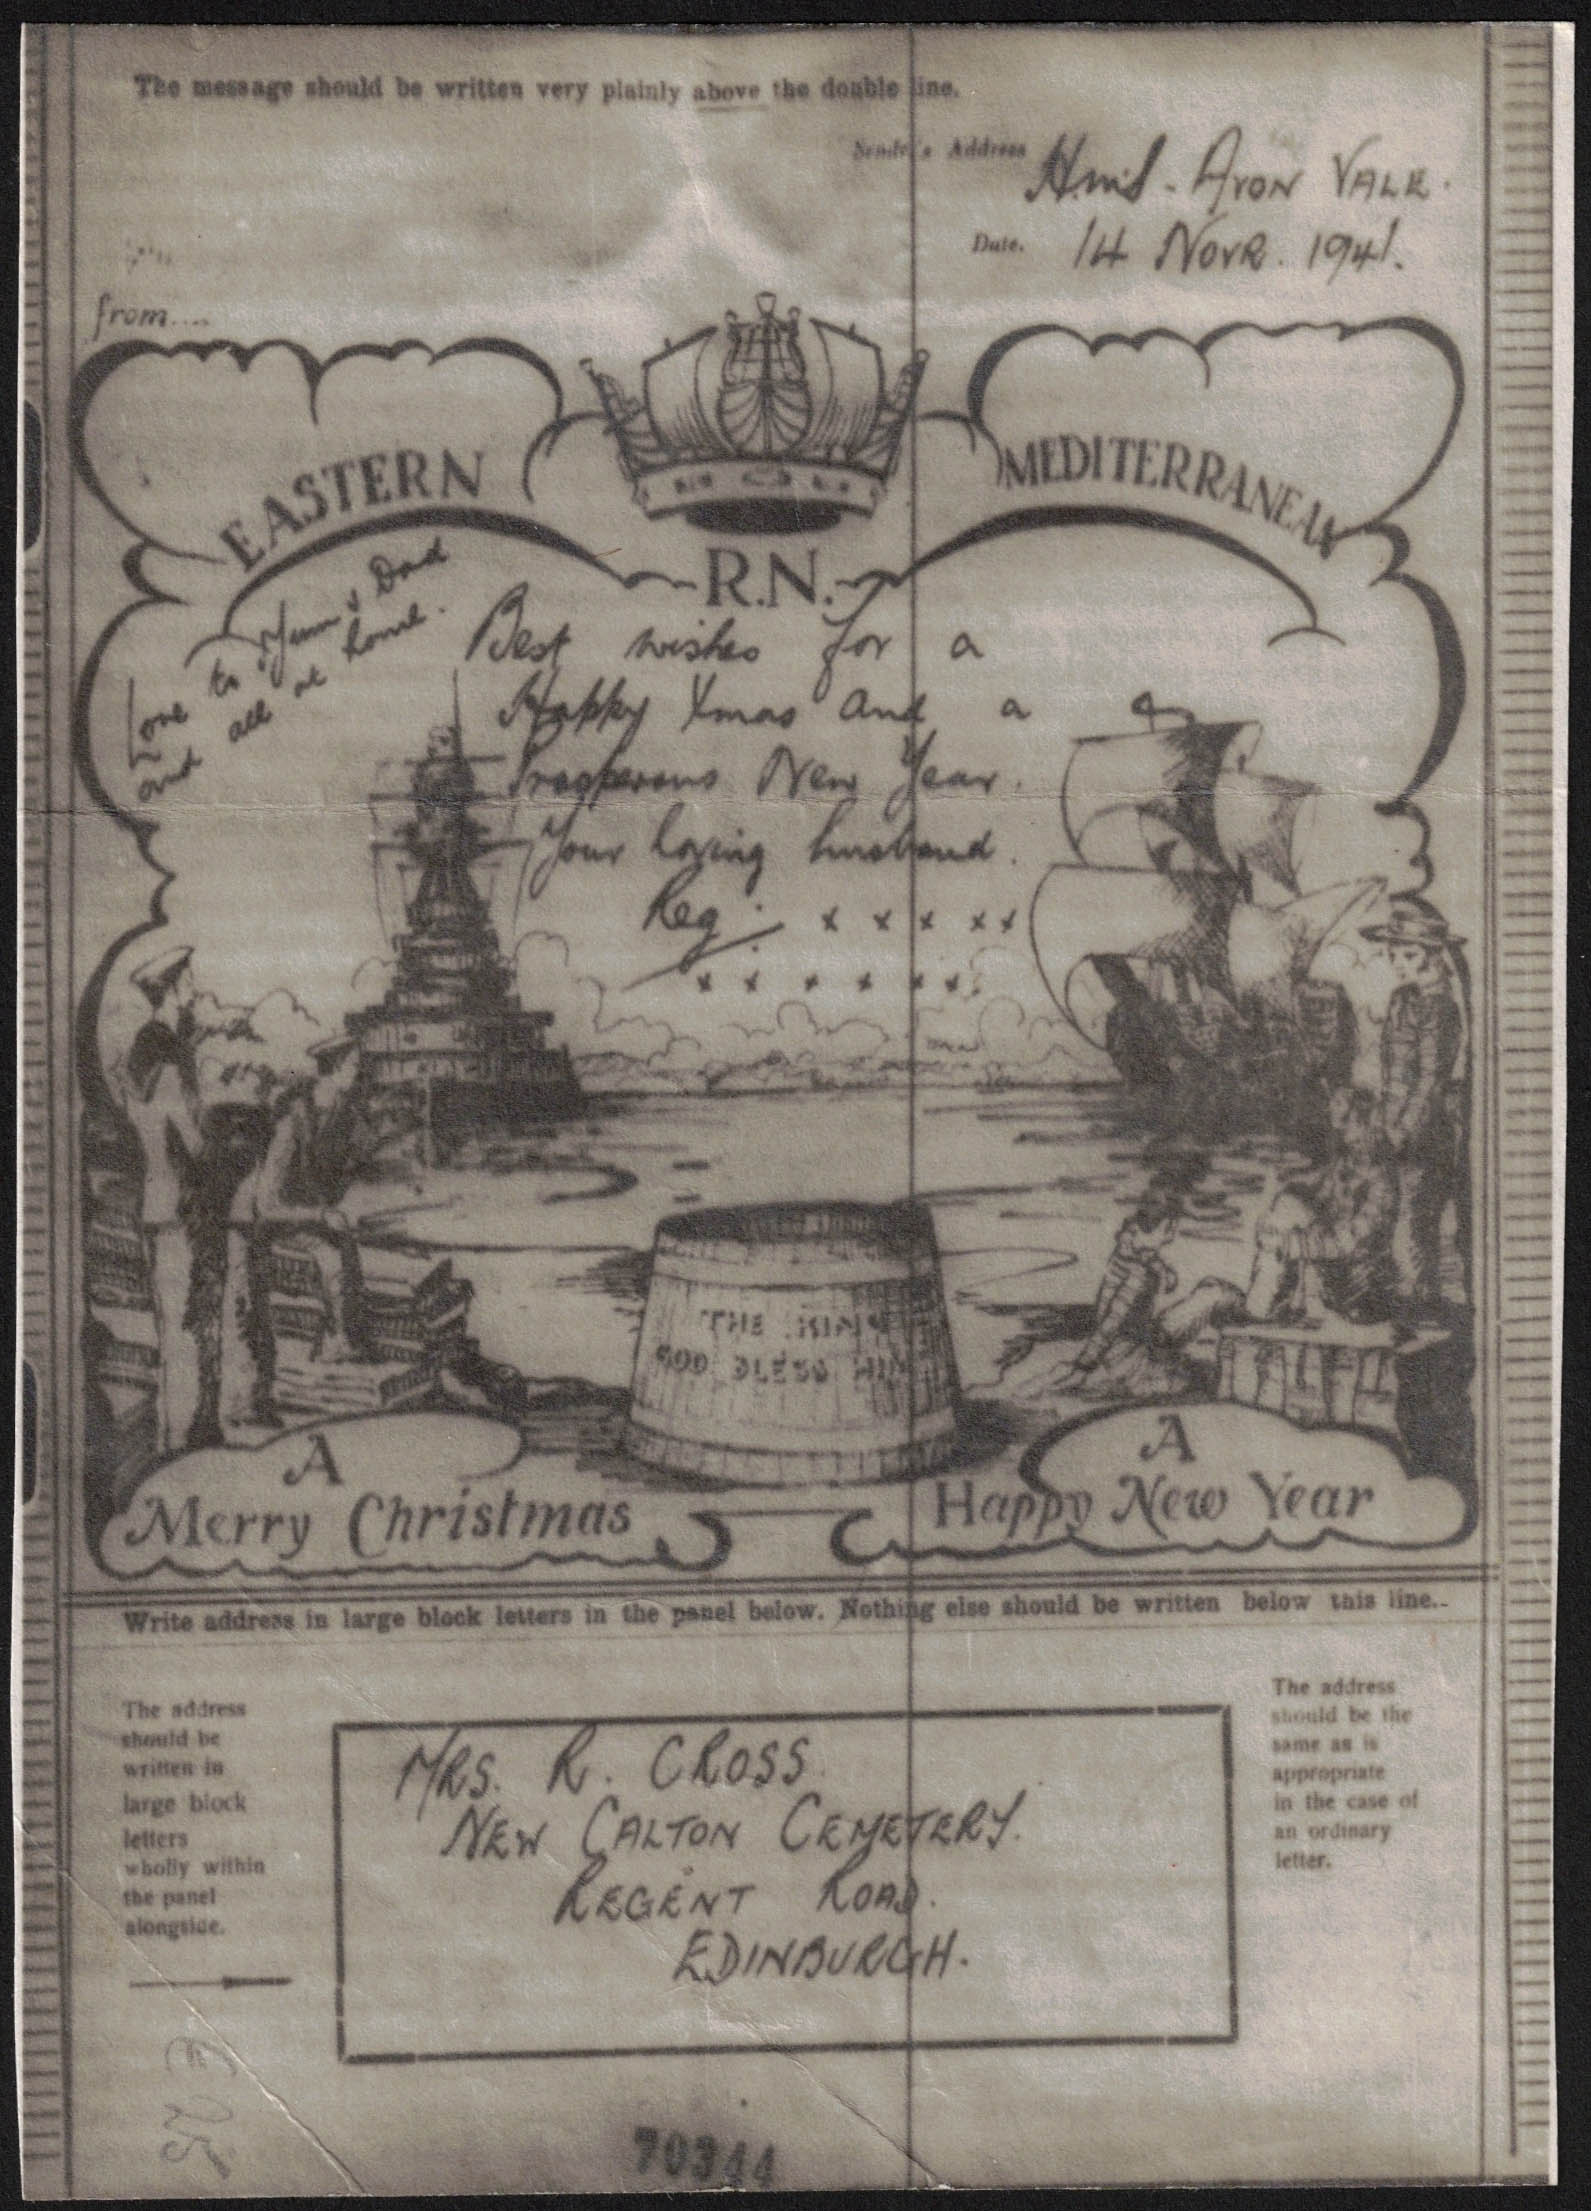 The message should be written very plainly above the double line.
Sender's Address H.M.S - AVON VALE.
Date. 14 NOVR. 1941.
from....
EASTERN
MEDITERRANEAN
R.N.
Love to Mum & Dad
and all at home.
Best wishes for a
Happy Xmas and a
Prosperous New Year.
Your loving husband.
Reg. x x x x x
x x x x x x
THE KING
GOD BLESS HIM
A
Merry Christmas
A
Happy New Year
Write address in large block letters in the panel below. Nothing else should be written below this line..
The address
should be
written in
large block
letters
wholly within
the panel
alongside.
MRS. R. CROSS.
NEW CALTON CEMETERY.
REGENT ROAD.
EDINBURGH.
The address
should be the
same as is
appropriate
in the case of
an ordinary
letter.
70344